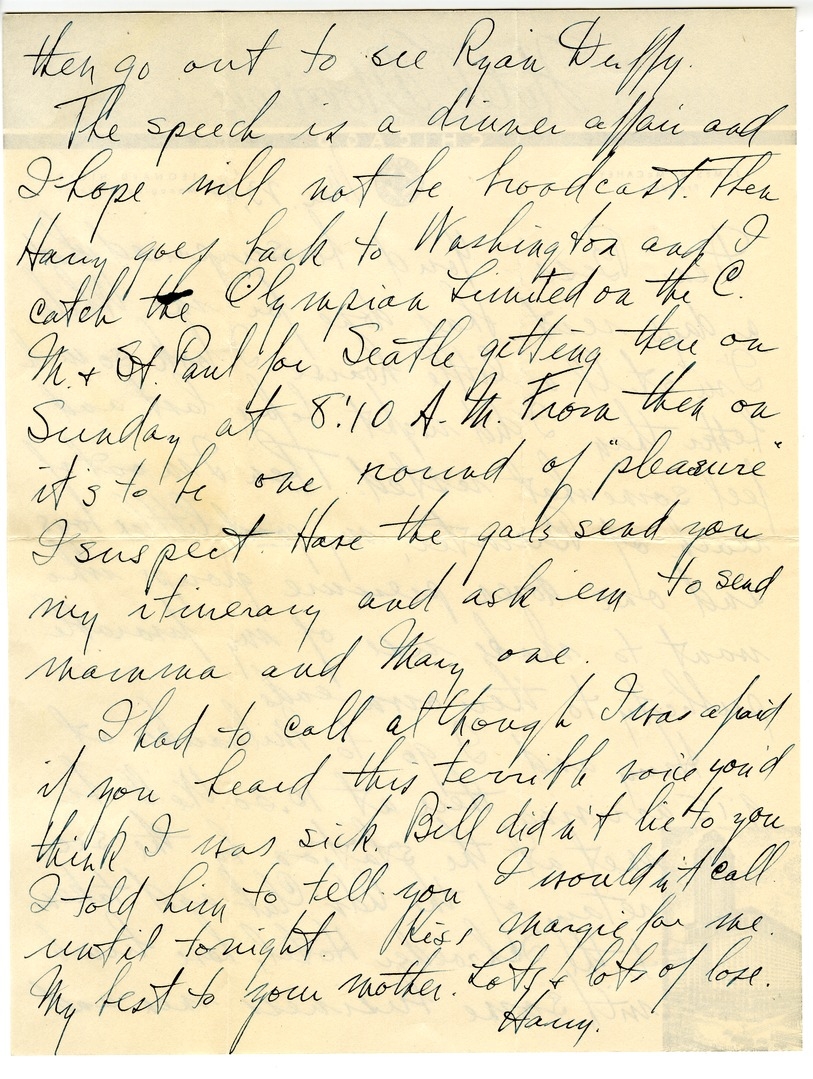 then go out to see Ryan Duffy.
The speech is a dinner affair and
I hope will not be broadcast. Then
Harry goes back to Washington and I
catch the Olympian Limited on the C.
M. & St. Paul for Seatle getting there on
Sunday at 8:10 A.M. From then on
it's to be one round of "pleasure"
I suspect. Have the gals send you
my itinerary and ask 'em to send
mamma and Mary one.
I had to call although I was afraid
if you heard this terrible voice you'd
think I was sick. Bill didn't lie to you
I told him to tell you I wouldn't call
until tonight. Kiss Margie for me.
My best to your mother. Lots & lots of love.
Harry.